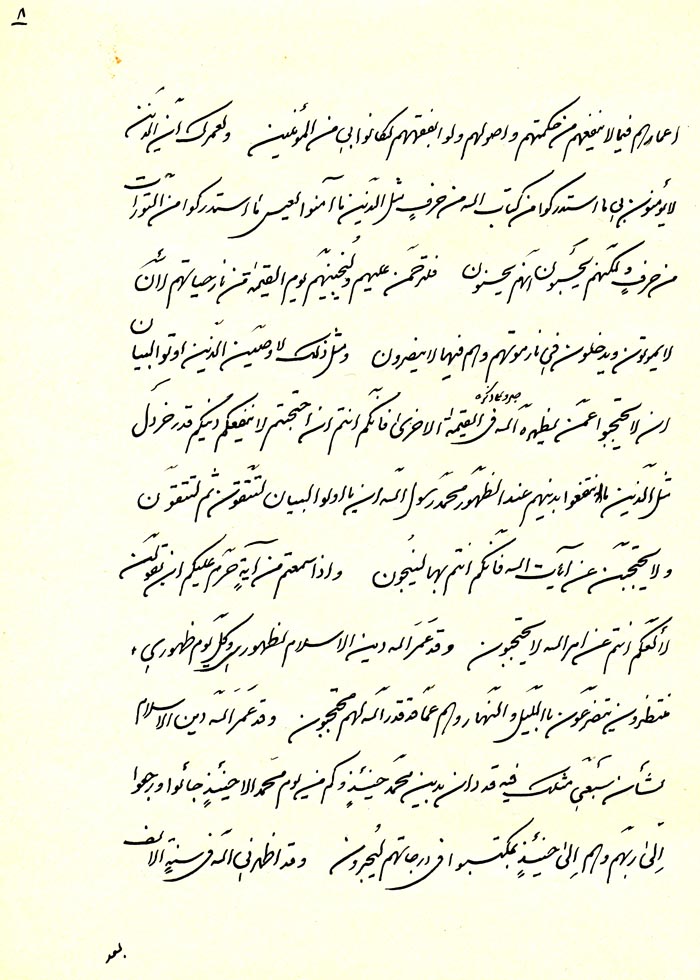 ٨
اعمارهم فيما لا ينفعهم من حكمتهم و اصولهم ولو ابفقههم لكانوا بي من المؤمنين ولعمرك ان الذين
لا يؤمنون بي ما استدركوا من كتاب الله من حرف مثل الذين ما آمنوا بعيسى ما استدركوا من التورات
من حرف ولكنهم يحسبون انهم يحسنون فلترحمن عليهم ولتنجينهم يوم القيمة من نار حياتهم لان
لا يموتون ويدخلون في نار موتهم وهم فيها لا ينصرون ومثل ذلك لاوصين الذين اوتوا البيان
ان لا يحتجبوا عمن يظهره الله في القيمة الاخرى فانكم انتم ان احتجبتم لا ينفعكم دينكم قدر خردل
مثل الذين ما انتفعوا بدينهم عند ظهور محمد رسول الله ان يا اولوا البيان لتتقون ثم لتتقون
ولا تحتجبن عن آيات الله فانكم انتم بها لتنجون واذا سمعتم من آية حرم عليكم ان تقولن
لا لعلكم انتم عن امر الله لا تحتجبون وقد عمر الله دين الاسلام لظهوري وكل يوم ظهوري
منتظرون يتضرعون بالليل والنهار وهم عما قد قدر الله لهم محتجبون وقد عمر الله دين الاسلام
بشأن سبعين ملك فيه قد دان بدين محمد حينئذ وكم من يوم محمد الا حينئذ جائوا ورجعوا
الى ربهم وهم الى حينئذ بمكتسبوا في درجاتهم ليجزون وقد اظهرني الله في سنة الالف
بعد